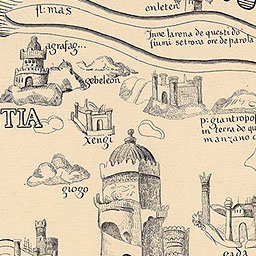 fl: mas
enleten
Jnue larena de questi do
fiumi se trous ore de parola
agrafag...
gebeleon
TIA
xengi
p: giantropo
in terra de qu
manzano c
giogo
gada